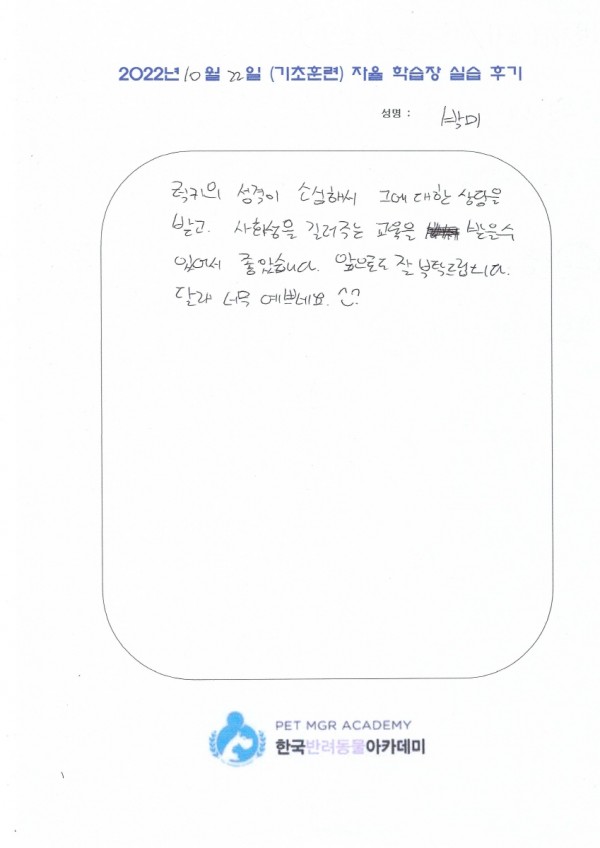 2022년 10월 22일 (기초훈련) 자율 학습장 실습 후기
성명 : 박미
럭키의 성격이 소심해서 그에 대한 상담을
받고. 사회성을 길러주는 교육을 받을수
있어서 좋았습니다. 앞으로도 잘 부탁드립니다.
달래 너무 예쁘네요. ^^?
PET MGR ACADEMY
한국반려동물아카데미